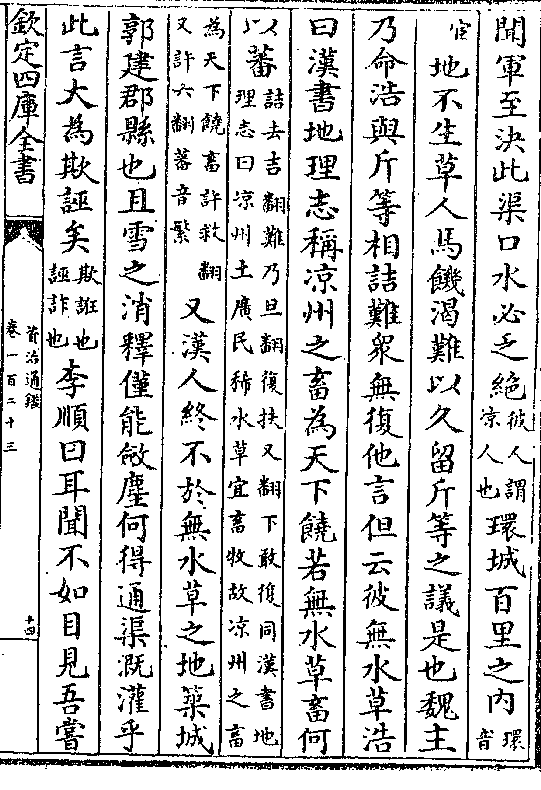 聞軍至決此渠口水必乏絶彼人謂涼人也環城百里之内環音
宦地不生草人馬饑渴難以久留斤等之議是也魏主
乃命浩與斤等相詰難衆無復他言但云彼無水草浩
曰漢書地理志稱涼州之畜為天下饒若無水草畜何
以蕃詰去吉翻難乃旦翻復扶又翻下敢復同漢書地理志曰涼州土廣民稀水草宜畜牧故凉州之畜
為天下饒畜許救翻又許六翻蕃音繁又漢人終不於無水草之地築城
郭建郡縣也且雪之消釋僅能斂塵何得通渠溉灌乎
此言大為欺誣矣欺誑也誣詐也李順曰耳聞不如目見吾嘗
欽定四庫全書
資治通鑑
卷一百二十三
十四